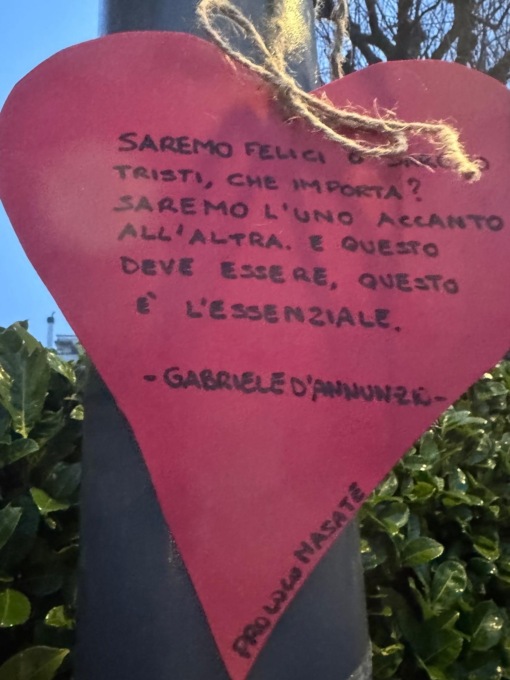 SAREMO FELICI O SAREMO
TRISTI, CHE IMPORTA?
SAREMO L'UNO ACCANTO
ALL'ALTRA. E QUESTO
DEVE ESSERE, QUESTO
E' L'ESSENZIALE.
-GABRIELE D'ANNUNZIO-
PRO LOCO MASATE